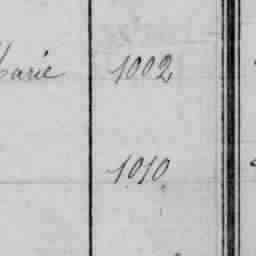 Marie 1002
1010